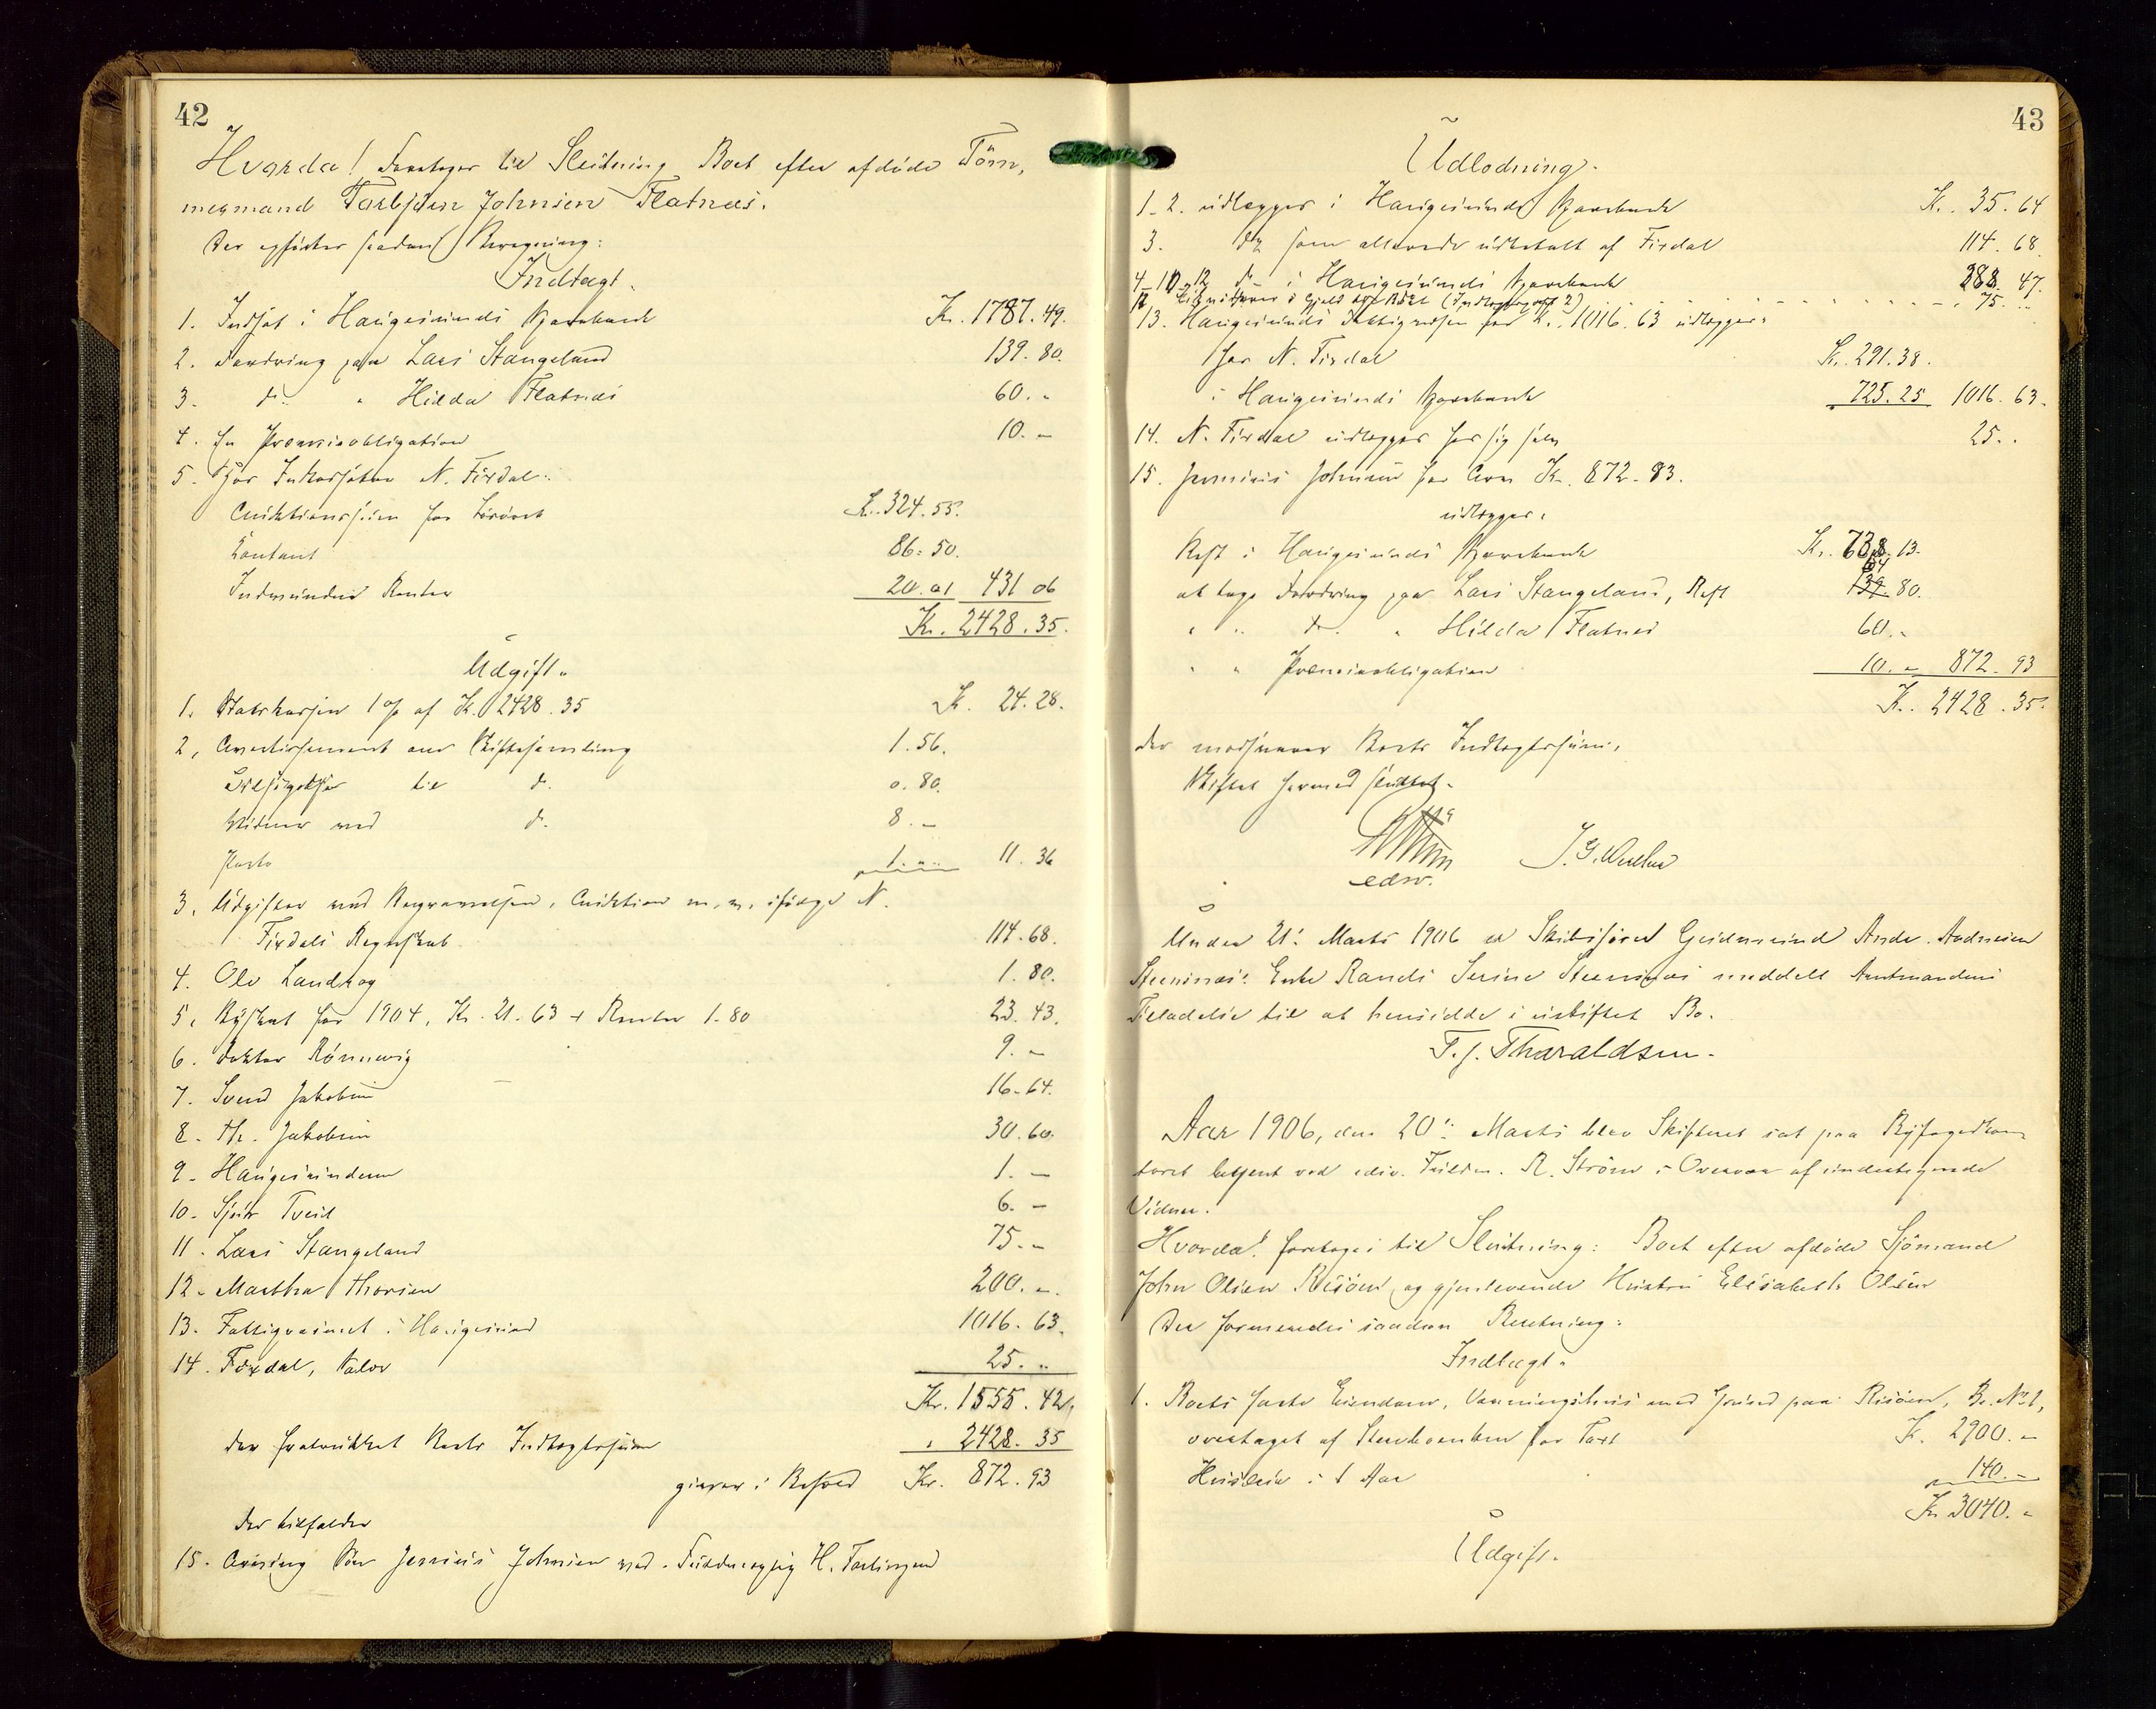 42
Hvorda! Foretoges til Slutning Boet efter afdøde Tøm,
mermand Torbjørn Johnsen Flatnæs.
Der opførtes saadan Beregning:
Indtægt.
1. Indsat i Haugesunds Sparebank Kr. 1787.49.
2. Fordring paa Lars Stangeland 139.80.
3. do. " Hilda Flatnæs 60. "
4. En Præmieobligation 10. –
5. Hos Inkassator N. Firdal:
Auktionssum for Løsøret Kr. 324.55.
Kontant 86.50.
Indvundne Renter 20.01 431 06
Kr. 2428.35.
Udgift.
1. Statskassen 1 % af Kr. 2428.35 Kr. 24.28.
2. Avertissement om Skiftesamling 1.56.
Tilsigelse til do. 0.80.
Vidner ved do. 8. –
Porto 1. " 11.36
3. Udgifter ved Begravelsen, Auktion m. v. ifølge N.
Firdals Regnskab 114.68.
4. Ole Landaag 1.80.
5. Byskat for 1904, Kr. 21.63 + Renter 1.80 23.43.
6. Doktor Rønnevig 9. –
7. Svend Jakobsen 16.64.
8. Th. Jakobsen 30.60.
9. Haugesunderen 1. –
10. Sjur Tveit 6. –
11. Lars Stangeland 75. –
12. Martha Thorsen 200. –
13. Fattigvæsenet i Haugesund 1016.63.
14. Firdal, Salær 25. "
Kr. 1555.42,
der fratrukket Boets Indtægtssum " 2428.35
giver i Behold Kr. 872.93
der tilfalder
15. Arving Søn Jermius Johnsen ved Fuldmægtig H. Torbiørnsen
43
Udlodning.
1-2. udlægges i Haugesunds Sparebank Kr. 35.64
3. do som allerede udbetalt af Firdal 114.68
4-10, 12 do – i Haugesunds Sparebank 288.47.
11. Likvideres i Gjeld til Boet (Indtægtspost 2) 75. "
13. Haugesunds Fattigvæsen for Kr. 1016.63 udlægges:
hos N. Firdal Kr. 291.38.
i Haugesunds Sparebank 725.25 1016.63.
14. N. Firdal udlægges hos sig selv 25. "
15. Jermius Johnsen for Arv Kr. 872.93.
udlægges:
Rest i Haugesunds Sparebank Kr. 738.13.
at tage Fordring paa Lars Stangeland, Rest 139 64.80.
" " do. " Hilda Flatnes 60. "
" " Præmieobligation 10. – 872.93
Kr. 2428.35.
der modsvarer Boets Indtægtssum.
Skiftet hermed sluttet.
edsv.
Under 21: Marts 1906 er Skibsfører Gudmund Andr. Andreasen
Steensnæs: Enke Randi Serine Steensnæs meddelt Amtmandens
Tilladelse til at hensidde i uskiftet Bo.
T. J. Tharaldsen.
Aar 1906, den 20: Marts blev Skifteret sat paa Byfogedkon,
toret betjent ved edsv. Fuldm. R. Strøm i Overvær af undertegnede
Vidner.
Hvorda! foretoges til Slutning: Boet efter afdøde Sjømand
John Olsen Risøen og gjenlevende Hustru Elisabeth Olsen
Der formeredes saadan Beretning:
Indtægt.
1. Boets faste Eiendom, Vaaningshus med Grund paa Risøen, Br. No 1,
overtaget af Stervboenken for Taxt Kr. 2900. –
Husleie i 1 Aar 140. –
Kr. 3040. –
Udgift.